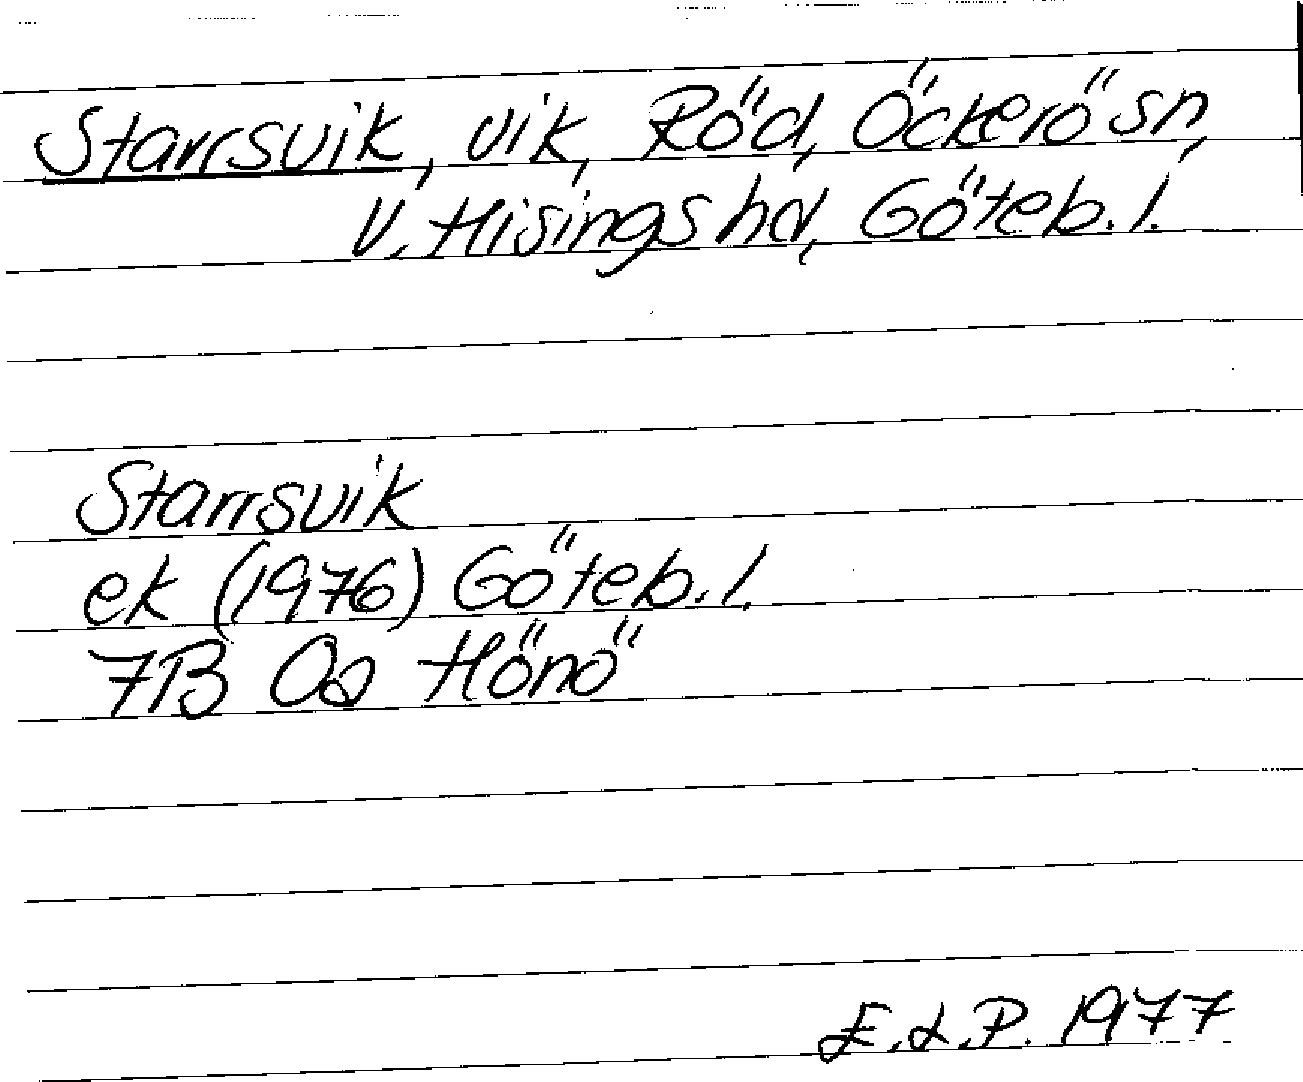 Starrsvik, vik, Röd, Öckerö sn,
V. Hisings hd, Göteb. l.
Starrsvik
ek (1976) Göteb. l.
7B 0a Hönö
E.L.P. 1977